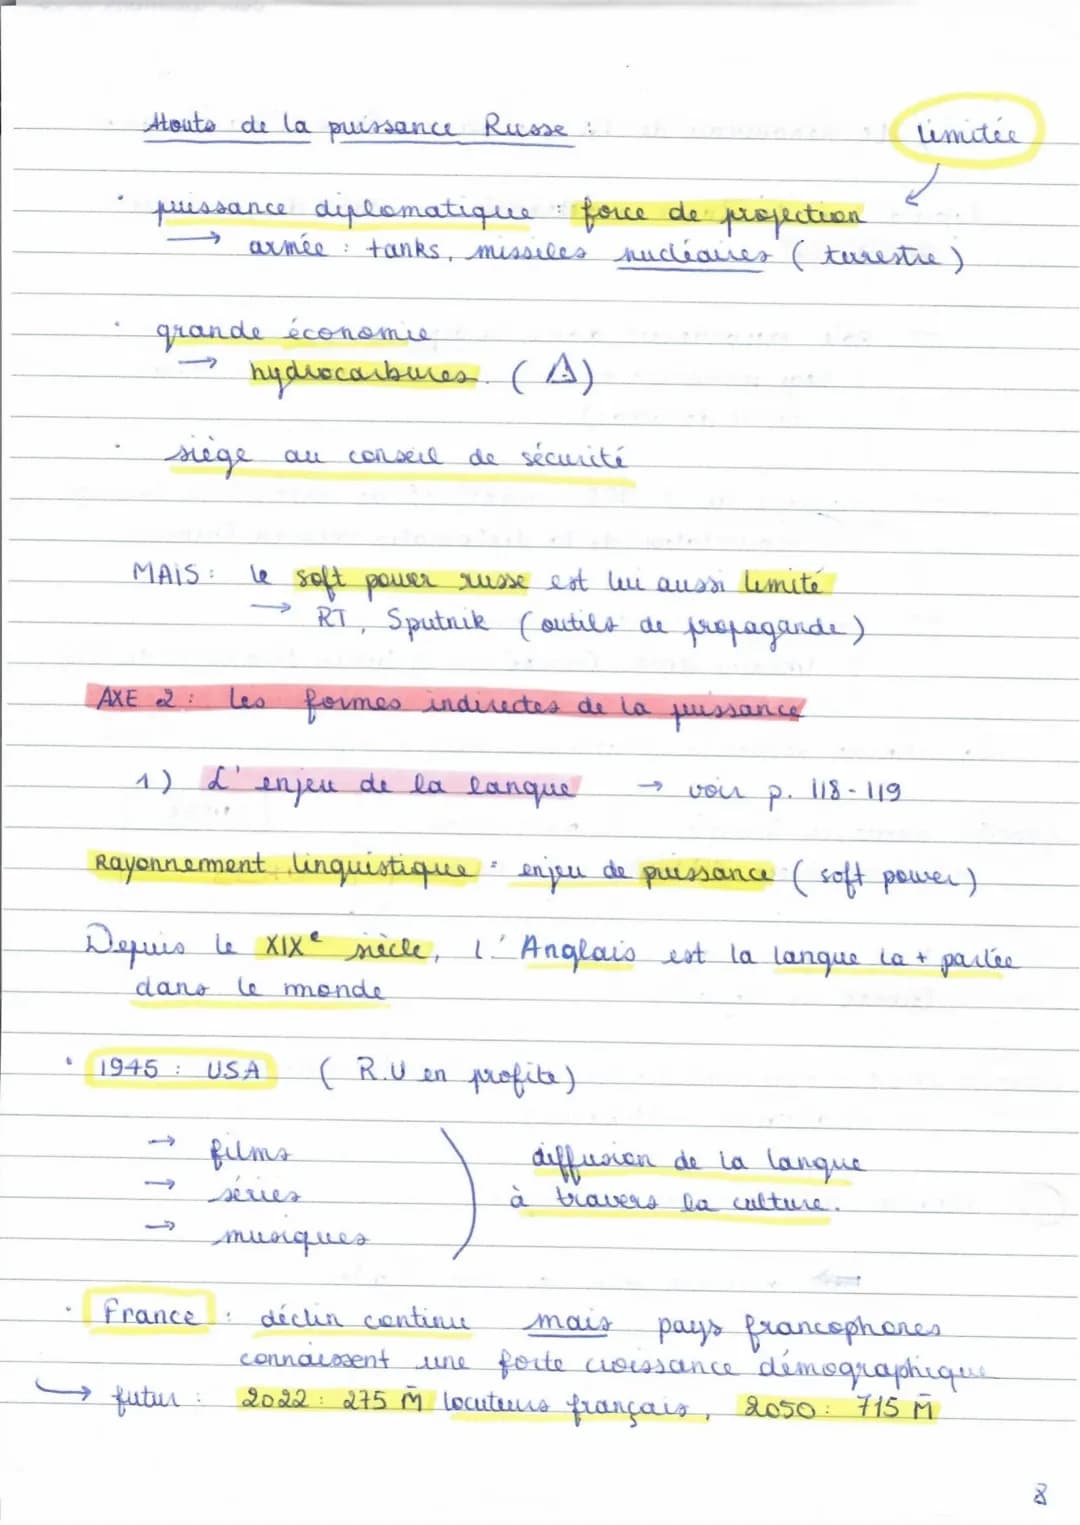 Atouts de la puissance Russe : limitée
· puissance diplomatique : force de projection
→ armée : tanks, missiles nucléaires ( terrestre )
· grande économie
→ hydrocarbures. ( ⚠ )
· siège au conseil de sécurité
MAIS : le soft power russe est lui aussi limité
→ RT, Sputnik ( outils de propagande )
AXE 2 : Les formes indirectes de la puissance
1) L'enjeu de la langue → voir p. 118-119
Rayonnement linguistique = enjeu de puissance ( soft power )
Depuis le XIXe siècle, l'Anglais est la langue la + parlée
dans le monde
· 1945 : USA ( R.U en profite )
→ films
→ séries
→ musiques
) diffusion de la langue
à travers la culture.
· France : déclin continu mais pays francophones
connaissent une forte croissance démographique
↪ futur : 2022 : 275 M̄ locuteurs français, 2050 : 715 M̄
8